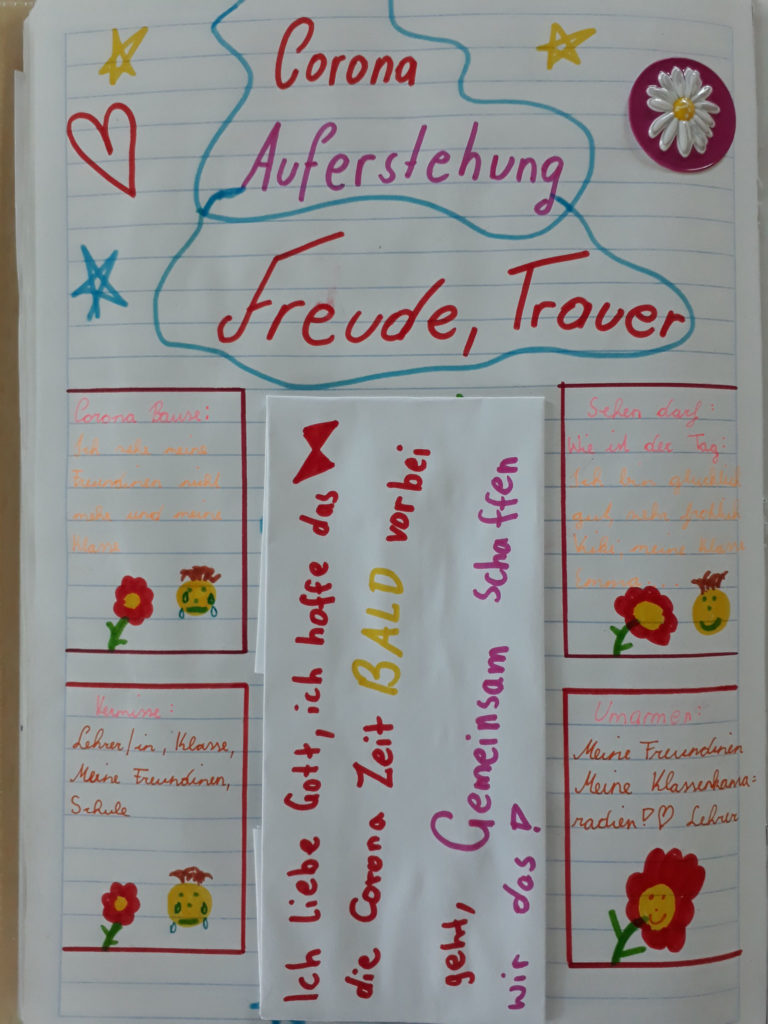 Corona
Auferstehung
Freude, Trauer
Corona Bause:
Ich sehe meine
Freundinen nicht
mehr und meine
Klasse
Sehen darf:
Wie ist der Tag:
Ich bin glücklich
gut, sehr fröhlich
meine Klasse
Emma...
Ich liebe Gott, ich hoffe das
die Corona Zeit BALD vorbei
geht, Gemeinsam schaffen
wir das!
Vermisse:
Lehrer/in, Klasse,
Meine Freundinen,
Schule
Umarmen:
Meine Freundinen
Meine Klassenkama=
radien!♡ Lehrer